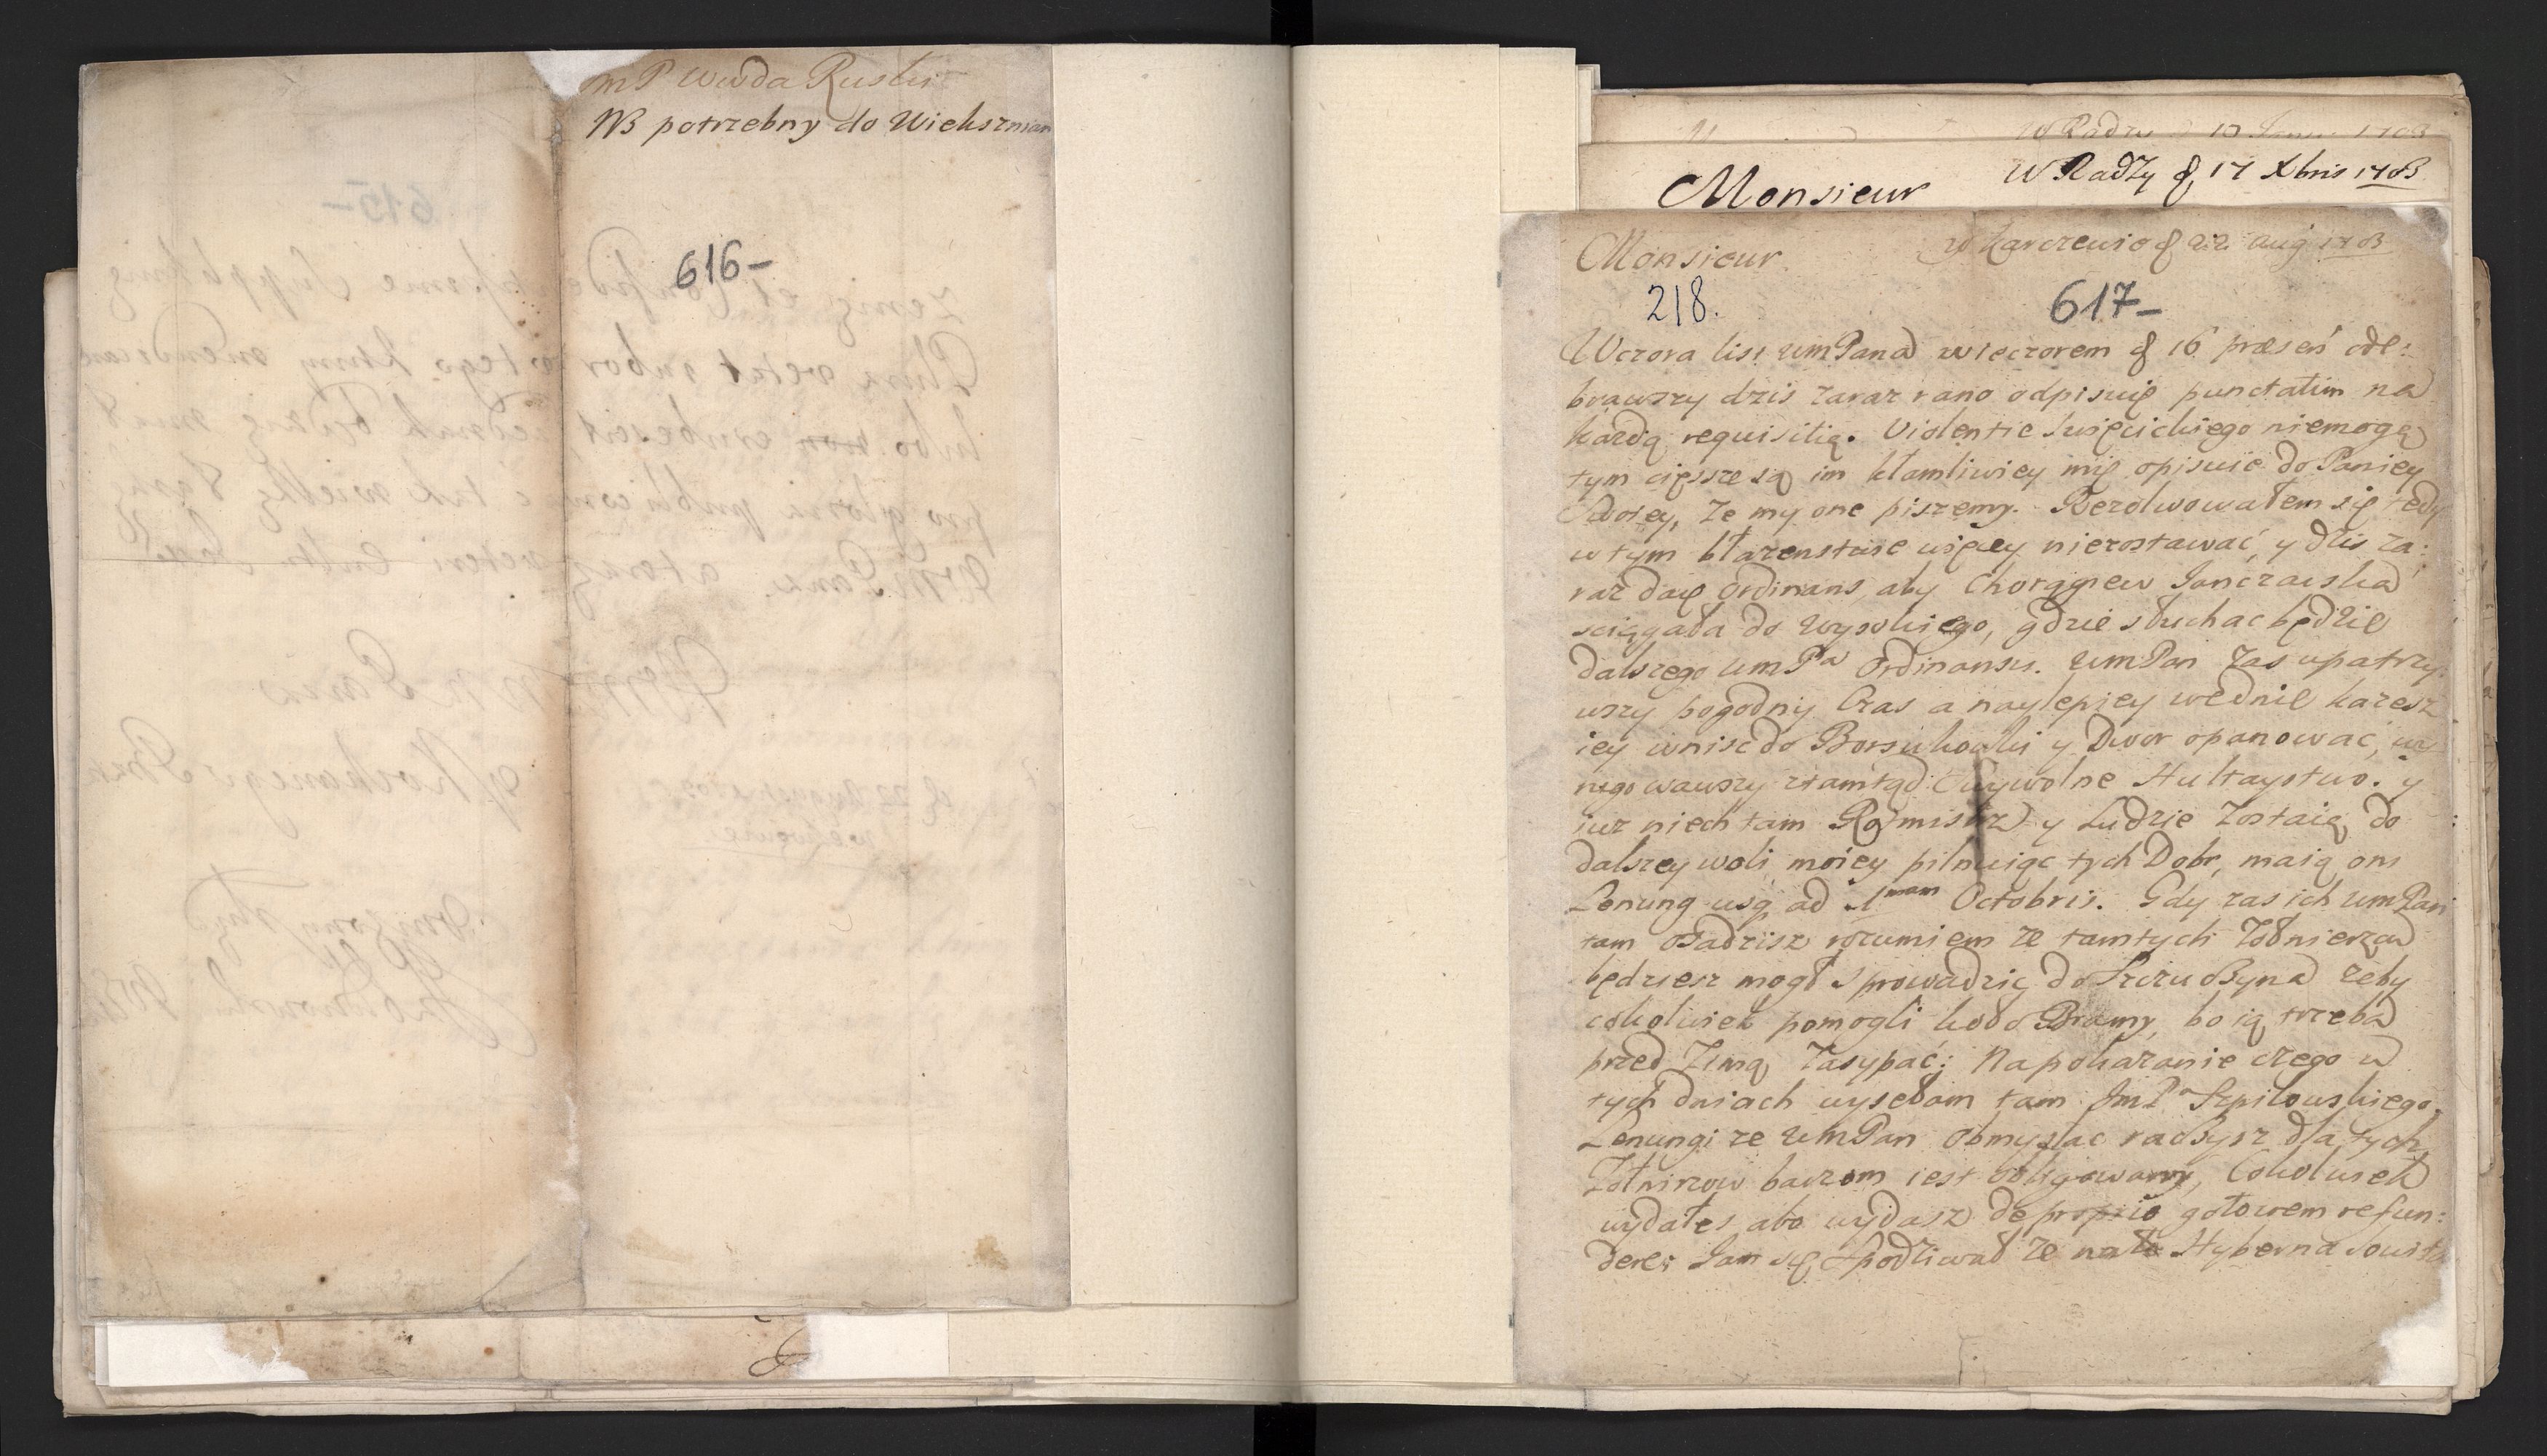 mP Wwda Ruski
NB potrzebny do Wieksznian
616-
W Radzy d 17 Xbris 1703
Monsieur
w Karczewie d 22 aug 1703
Monsieur
218.
617-
Wczora list WmPana wieczorem d 16 præsen ode:
brawszy dzis zaraz rano odpisuię punctatim na
każdą requisitią. Violentie Swięcickiego niemogą
tym cięższe są im kłamliwiey mię opisuie do Paniey
Swoiey, że my one piszemy. Rezolwowałem się tedy
w tym błazenstwie więcey niezostawać, y dzis za:
raz daię ordinans, aby Chorągiew Janczarska
sciągała do Wysokiego, gdzie słuchac będzie
dalszego WmPa Ordinansu. WmPan zas upatrzy:
wszy pogodny Czas a naylepiey wednie każesz
iey wnisc do Borsukowki y Dwor opanować, wy
rugowawszy ztamtąd Swywolne Hultaystwo. y
iuz niech tam Rotmistrz y Ludzie zostaią do
dalszey woli moiey pilnuiąc tych Dobr, maią oni
Lenung usq ad 1mam Octobris. Gdy zas ich WmPan
tam osadzisz rozumiem ze tamtych żołnierzow
będziesz mogł sprowadzić do Szczuczyna żeby
cokolwiek pomogli koło Bramy, bo ią trzeba
przed Zimą Zasypać; Na pokazanie czego w
tych dniach wysełam tam JmP Szpilowskiego,
Lenungi ze WmPan obmyslac raczysz dla tych
Żołnirzow barzom iest obligowany, Cokolwiek
wydałes abo wydasz de proprio gotowem refun:
dere; Jam się spodziwał ze na to Hyberna